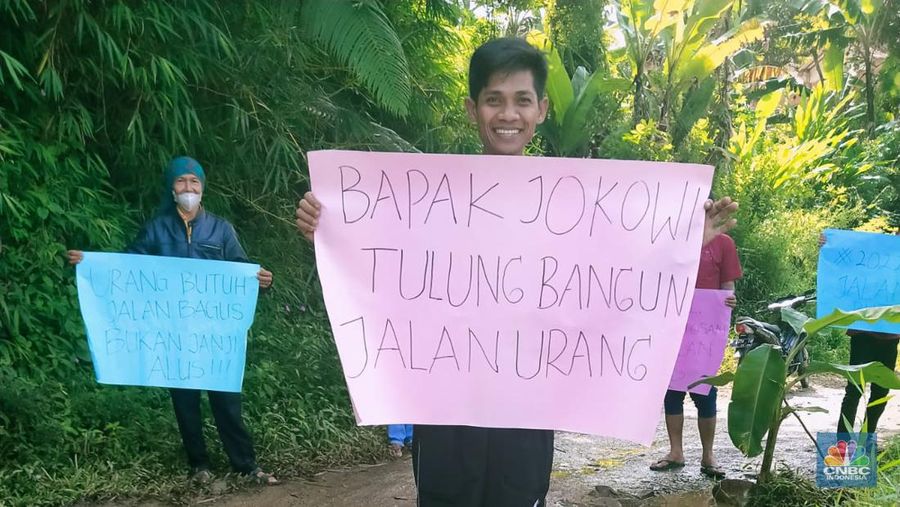 URANG BUTUH
JALAN BAGUS
BUKAN JANJI
ALUS!!!
BAPAK JOKOWI
TULUNG BANGUN
JALAN URANG
JALAN
JALAN
CNBC
INDONESIA